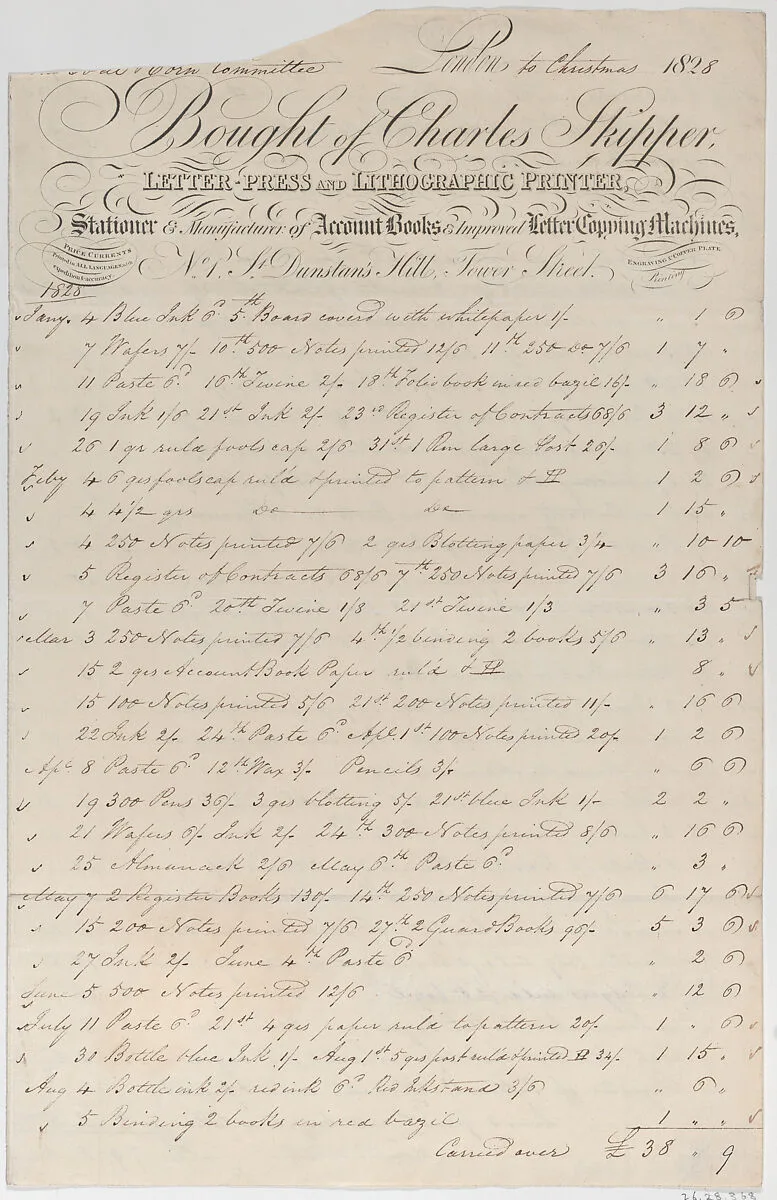 Corn Committee London to Christmas 1828
Bought of Charles Skipper,
LETTER-PRESS AND LITHOGRAPHIC PRINTER,
Stationer & Manufacturer of Account Books & Improved Letter Copying Machines,
PRICE CURRENTS Printed in ALL LANGUAGES with expedition & accuracy.
No. 1, St. Dunstan's Hill, Tower Street.
ENGRAVING & COPPER PLATE Printing
1828
Jany. 4 Blue Ink 6d 5th Board coverd with white paper 1/- " 1 6
7 Wafers 7/- 10th 500 Notes printed 12/6 11th 250 Do 7/6 1 7 "
11 Paste 6d 16th Twine 2/- 18th Folio book in red bazil 16/- " 18 6
19 Ink 1/6 21st Ink 2/- 23rd Register of Contracts 68/6 3 12 "
26 1 qr ruld foolscap 2/6 31st 1 Rm large Post 26/- 1 8 6
Feby 4 6 qrs foolscap ruld & printed to pattern & 1 2 6
4 4 1/2 qrs Do Do 1 15 "
4 250 Notes printed 7/6 2 qrs Blotting paper 3/4 " 10 10
5 Register of Contracts 68/6 7th 250 Notes printed 7/6 3 16 "
7 Paste 6d 20th Twine 1/8 21st Twine 1/3 " 3 5
Mar 3 250 Notes printed 7/6 4th 1/2 binding 2 books 5/6 " 13 "
15 2 qrs Account Book Paper ruld & 8 "
15 100 Notes printed 5/6 21st 200 Notes printed 11/- " 16 6
22 Ink 2/- 24th Paste 6d Apl. 1st 100 Notes printed 20/- 1 2 6
Apl. 8 Paste 6d 12th Wax 3/- Pencils 3/- " 6 6
19 300 Pens 36/- 3 qrs blotting 5/- 21st blue Ink 1/- 2 2 "
21 Wafers 6/- Ink 2/- 24th 300 Notes printed 8/6 " 16 6
25 Almanack 2/6 May 6th Paste 6d " 3 "
May 7 2 Register Books 130/- 14th 250 Notes printed 7/6 6 17 6
15 200 Notes printed 7/6 27th 2 Guard Books 96/- 5 3 6
27 Ink 2/- June 4th Paste 6d " 2 6
June 5 500 Notes printed 12/6 " 12 6
July 11 Paste 6d 21st 4 qrs paper ruld to pattern 20/- 1 " 6
30 Bottle blue Ink 1/- Aug 1st 5 qrs post ruld & printed 34/- 1 15 "
Aug 4 Bottle ink 2/- red ink 6d Red Inkstand 3/6 " 6 "
5 Binding 2 books in red bazil 1 " "
Carried over £ 38 " 9
26.28.358